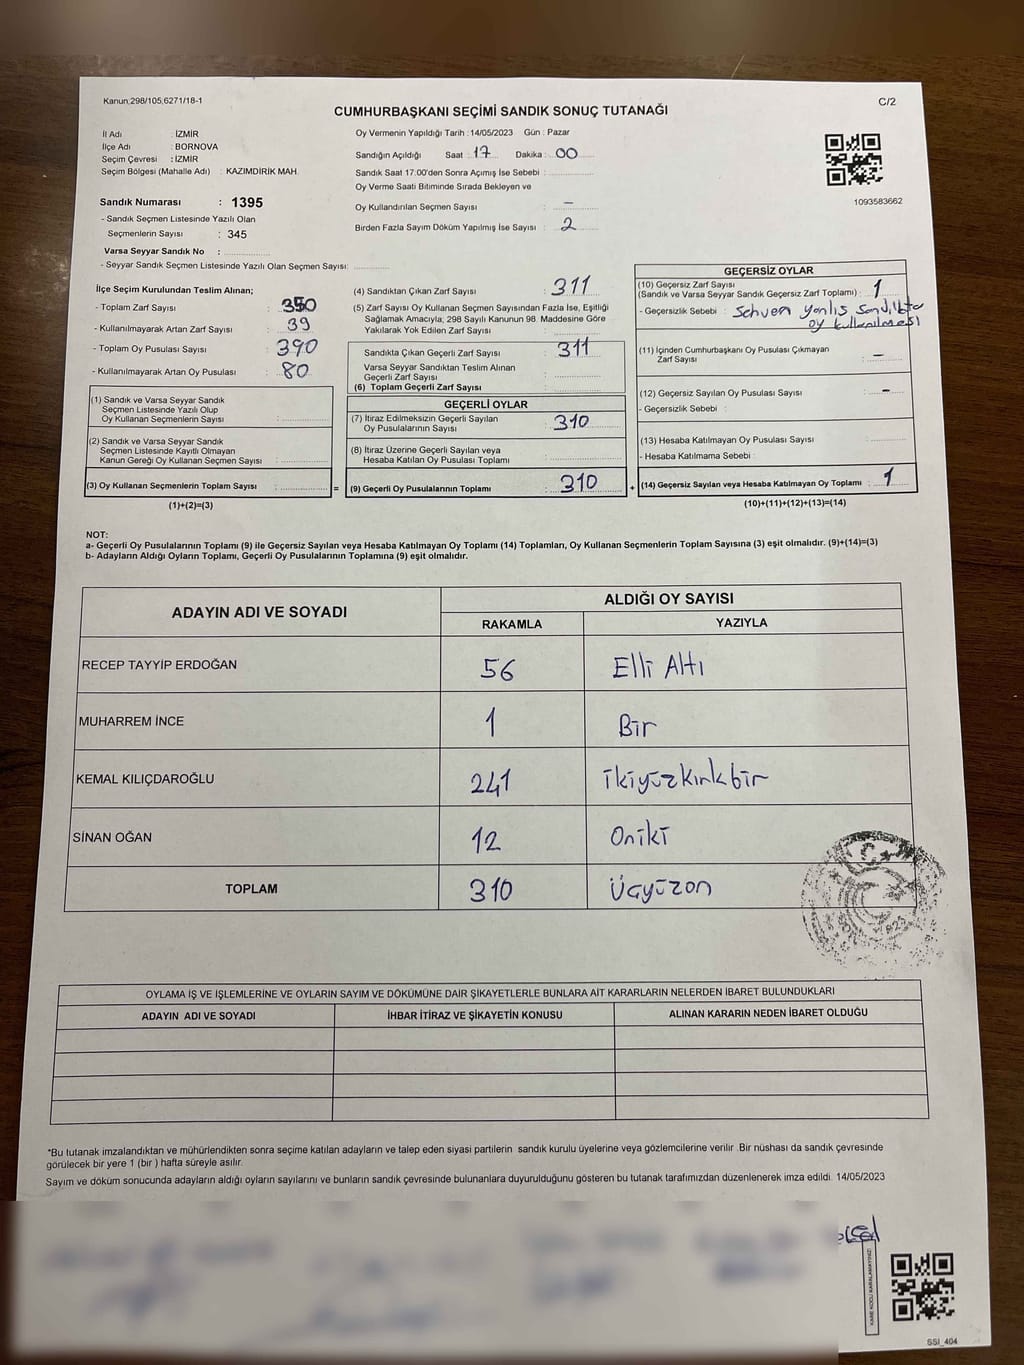 Kanun;298/105;6271/18-1
C/2
CUMHURBAŞKANI SEÇİMİ SANDIK SONUÇ TUTANAĞI
İl Adı : İZMİR
İlçe Adı : BORNOVA
Seçim Çevresi : İZMİR
Seçim Bölgesi (Mahalle Adı) : KAZIMDİRİK MAH.
Sandık Numarası : 1395
- Sandık Seçmen Listesinde Yazılı Olan
Seçmenlerin Sayısı : 345
Varsa Seyyar Sandık No :
- Seyyar Sandık Seçmen Listesinde Yazılı Olan Seçmen Sayısı:
Oy Vermenin Yapıldığı Tarih : 14/05/2023 Gün : Pazar
Sandığın Açıldığı Saat : 17 Dakika : 00
Sandık Saat 17:00'den Sonra Açımış İse Sebebi :
Oy Verme Saati Bitiminde Sırada Bekleyen ve
Oy Kullandırılan Seçmen Sayısı : –
Birden Fazla Sayım Döküm Yapılmış İse Sayısı : 2
1093583662
İlçe Seçim Kurulundan Teslim Alınan;
- Toplam Zarf Sayısı : 350
- Kullanılmayarak Artan Zarf Sayısı : 39
- Toplam Oy Pusulası Sayısı : 390
- Kullanılmayarak Artan Oy Pusulası : 80
(1) Sandık ve Varsa Seyyar Sandık
Seçmen Listesinde Yazılı Olup
Oy Kullanan Seçmenlerin Sayısı :
(2) Sandık ve Varsa Seyyar Sandık
Seçmen Listesinde Kayıtlı Olmayan
Kanun Gereği Oy Kullanan Seçmen Sayısı :
(3) Oy Kullanan Seçmenlerin Toplam Sayısı : =
(1)+(2)=(3)
(4) Sandıktan Çıkan Zarf Sayısı : 311
(5) Zarf Sayısı Oy Kullanan Seçmen Sayısından Fazla İse, Eşitliği
Sağlamak Amacıyla; 298 Sayılı Kanunun 98. Maddesine Göre
Yakılarak Yok Edilen Zarf Sayısı :
Sandıkta Çıkan Geçerli Zarf Sayısı : 311
Varsa Seyyar Sandıktan Teslim Alınan
Geçerli Zarf Sayısı :
(6) Toplam Geçerli Zarf Sayısı :
GEÇERLİ OYLAR
(7) İtiraz Edilmeksizin Geçerli Sayılan
Oy Pusulalarının Sayısı : 310
(8) İtiraz Üzerine Geçerli Sayılan veya
Hesaba Katılan Oy Pusulası Toplamı :
(9) Geçerli Oy Pusulalarının Toplamı : 310 +
GEÇERSİZ OYLAR
(10) Geçersiz Zarf Sayısı
(Sandık ve Varsa Seyyar Sandık Geçersiz Zarf Toplamı) : 1
- Geçersizlik Sebebi : Sehven yanlış sandıkta
oy kullanılması
(11) İçinden Cumhurbaşkanı Oy Pusulası Çıkmayan
Zarf Sayısı : –
(12) Geçersiz Sayılan Oy Pusulası Sayısı : –
- Geçersizlik Sebebi :
(13) Hesaba Katılmayan Oy Pusulası Sayısı :
- Hesaba Katılmama Sebebi :
(14) Geçersiz Sayılan veya Hesaba Katılmayan Oy Toplamı : 1
(10)+(11)+(12)+(13)=(14)
NOT:
a- Geçerli Oy Pusulalarının Toplamı (9) ile Geçersiz Sayılan veya Hesaba Katılmayan Oy Toplamı (14) Toplamları, Oy Kullanan Seçmenlerin Toplam Sayısına (3) eşit olmalıdır. (9)+(14)=(3)
b- Adayların Aldığı Oyların Toplamı, Geçerli Oy Pusulalarının Toplamına (9) eşit olmalıdır.
ADAYIN ADI VE SOYADI ALDIĞI OY SAYISI
RAKAMLA YAZIYLA
RECEP TAYYİP ERDOĞAN 56 Elli Altı
MUHARREM İNCE 1 Bir
KEMAL KILIÇDAROĞLU 241 ikiyüzkırkbir
SİNAN OĞAN 12 Oniki
TOPLAM 310 Üçyüzon
OYLAMA İŞ VE İŞLEMLERİNE VE OYLARIN SAYIM VE DÖKÜMÜNE DAİR ŞİKAYETLERLE BUNLARA AİT KARARLARIN NELERDEN İBARET BULUNDUKLARI
ADAYIN ADI VE SOYADI İHBAR İTİRAZ VE ŞİKAYETİN KONUSU ALINAN KARARIN NEDEN İBARET OLDUĞU
*Bu tutanak imzalandıktan ve mühürlendikten sonra seçime katılan adayların ve talep eden siyasi partilerin sandık kurulu üyelerine veya gözlemcilerine verilir. Bir nüshası da sandık çevresinde
görülecek bir yere 1 (bir ) hafta süreyle asılır.
Sayım ve döküm sonucunda adayların aldığı oyların sayılarını ve bunların sandık çevresinde bulunanlara duyurulduğunu gösteren bu tutanak tarafımızdan düzenlenerek imza edildi. 14/05/2023
KARE KODU KARALAMAYINIZ!
SSI_404